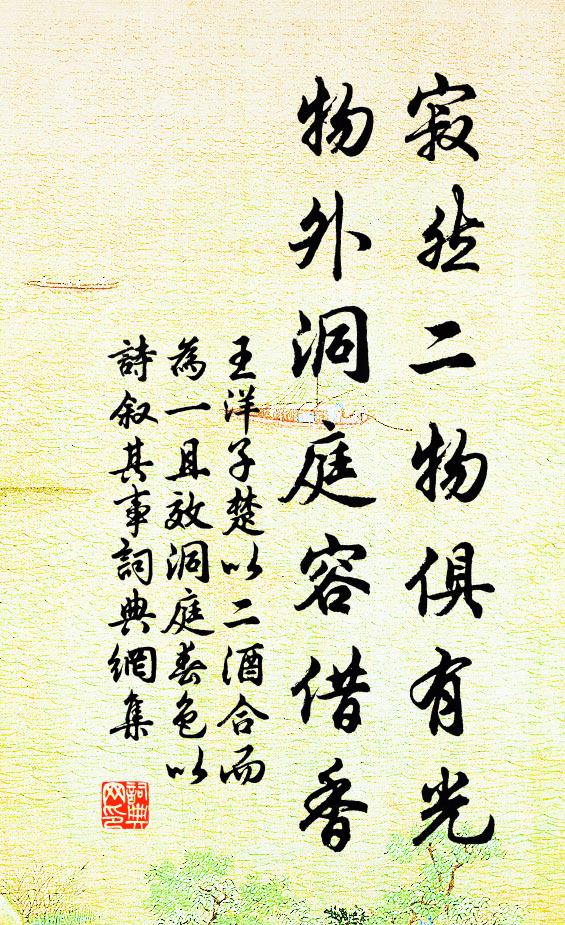 寂然二物俱有光
物外洞庭容借香
王洋子楚以二酒合而
為一且效洞庭春色以
詩叙其事詞典網集
詞典
网印